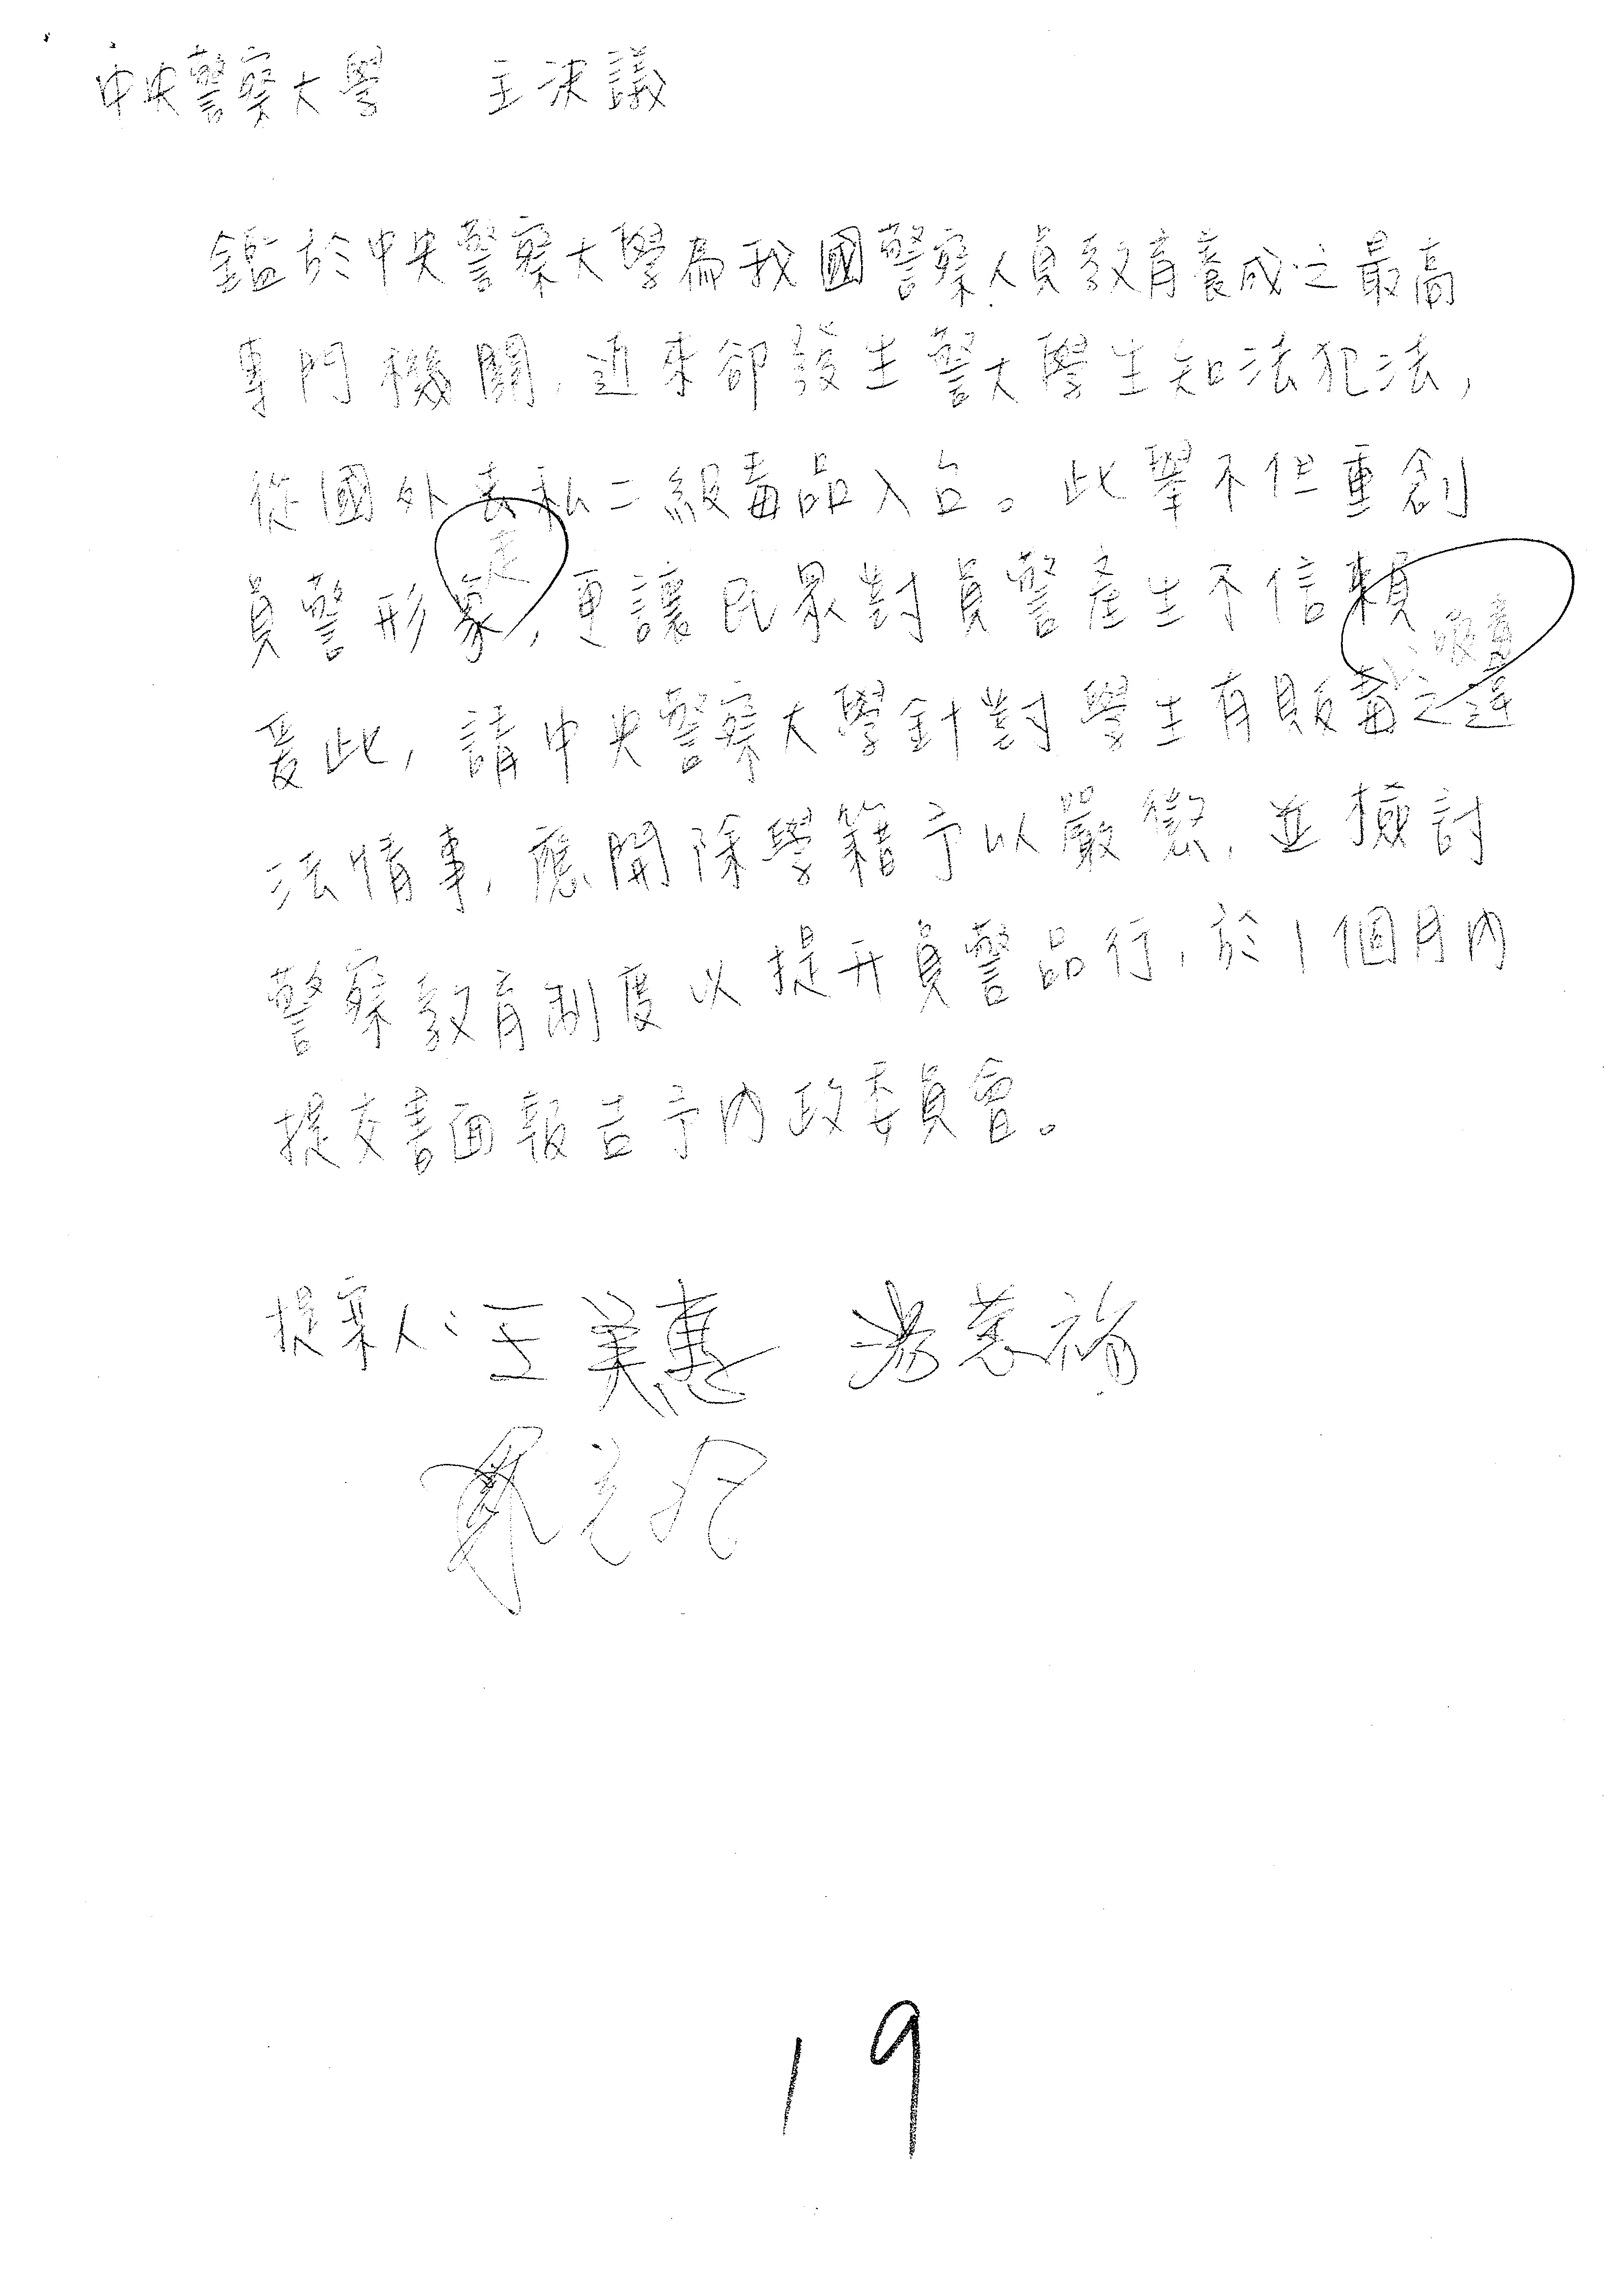 中央警察大學 主決議
鑑於中央警察大學為我國警察人員教育養成之最高
專門機關,近來卻發生警大學生知法犯法,
從國外走私二級毒品入台。此舉不但重創
走
員警形象,更讓民眾對員警產生不信賴
、吸毒
爰此,請中央警察大學針對學生有販毒之違
法情事,應開除學籍予以嚴懲,並檢討
警察教育制度以提升員警品行,於1個月內
提交書面報告予內政委員會。
提案人:王美惠
19